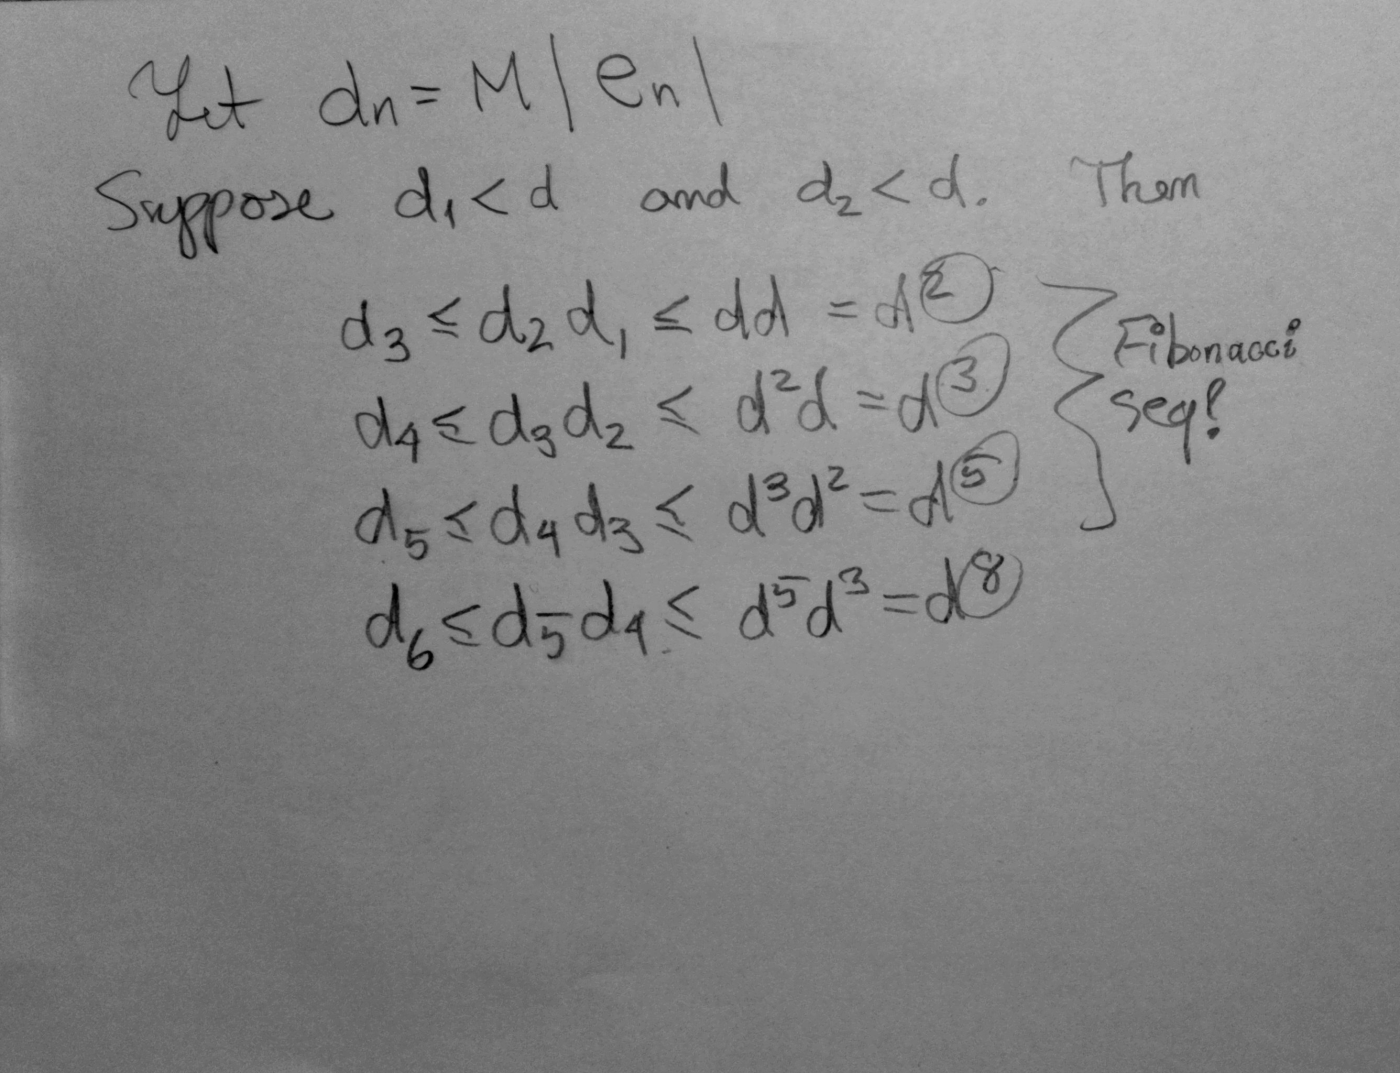 Let dn = M | en |
Suppose d₁ < d and d₂ < d. Then
d₃ ≤ d₂ d₁ ≤ dd = d²
d₄ ≤ d₃ d₂ ≤ d²d = d³
d₅ ≤ d₄ d₃ ≤ d³d² = d⁵
d₆ ≤ d₅ d₄ ≤ d⁵d³ = d⁸
Fibonacci
seq!